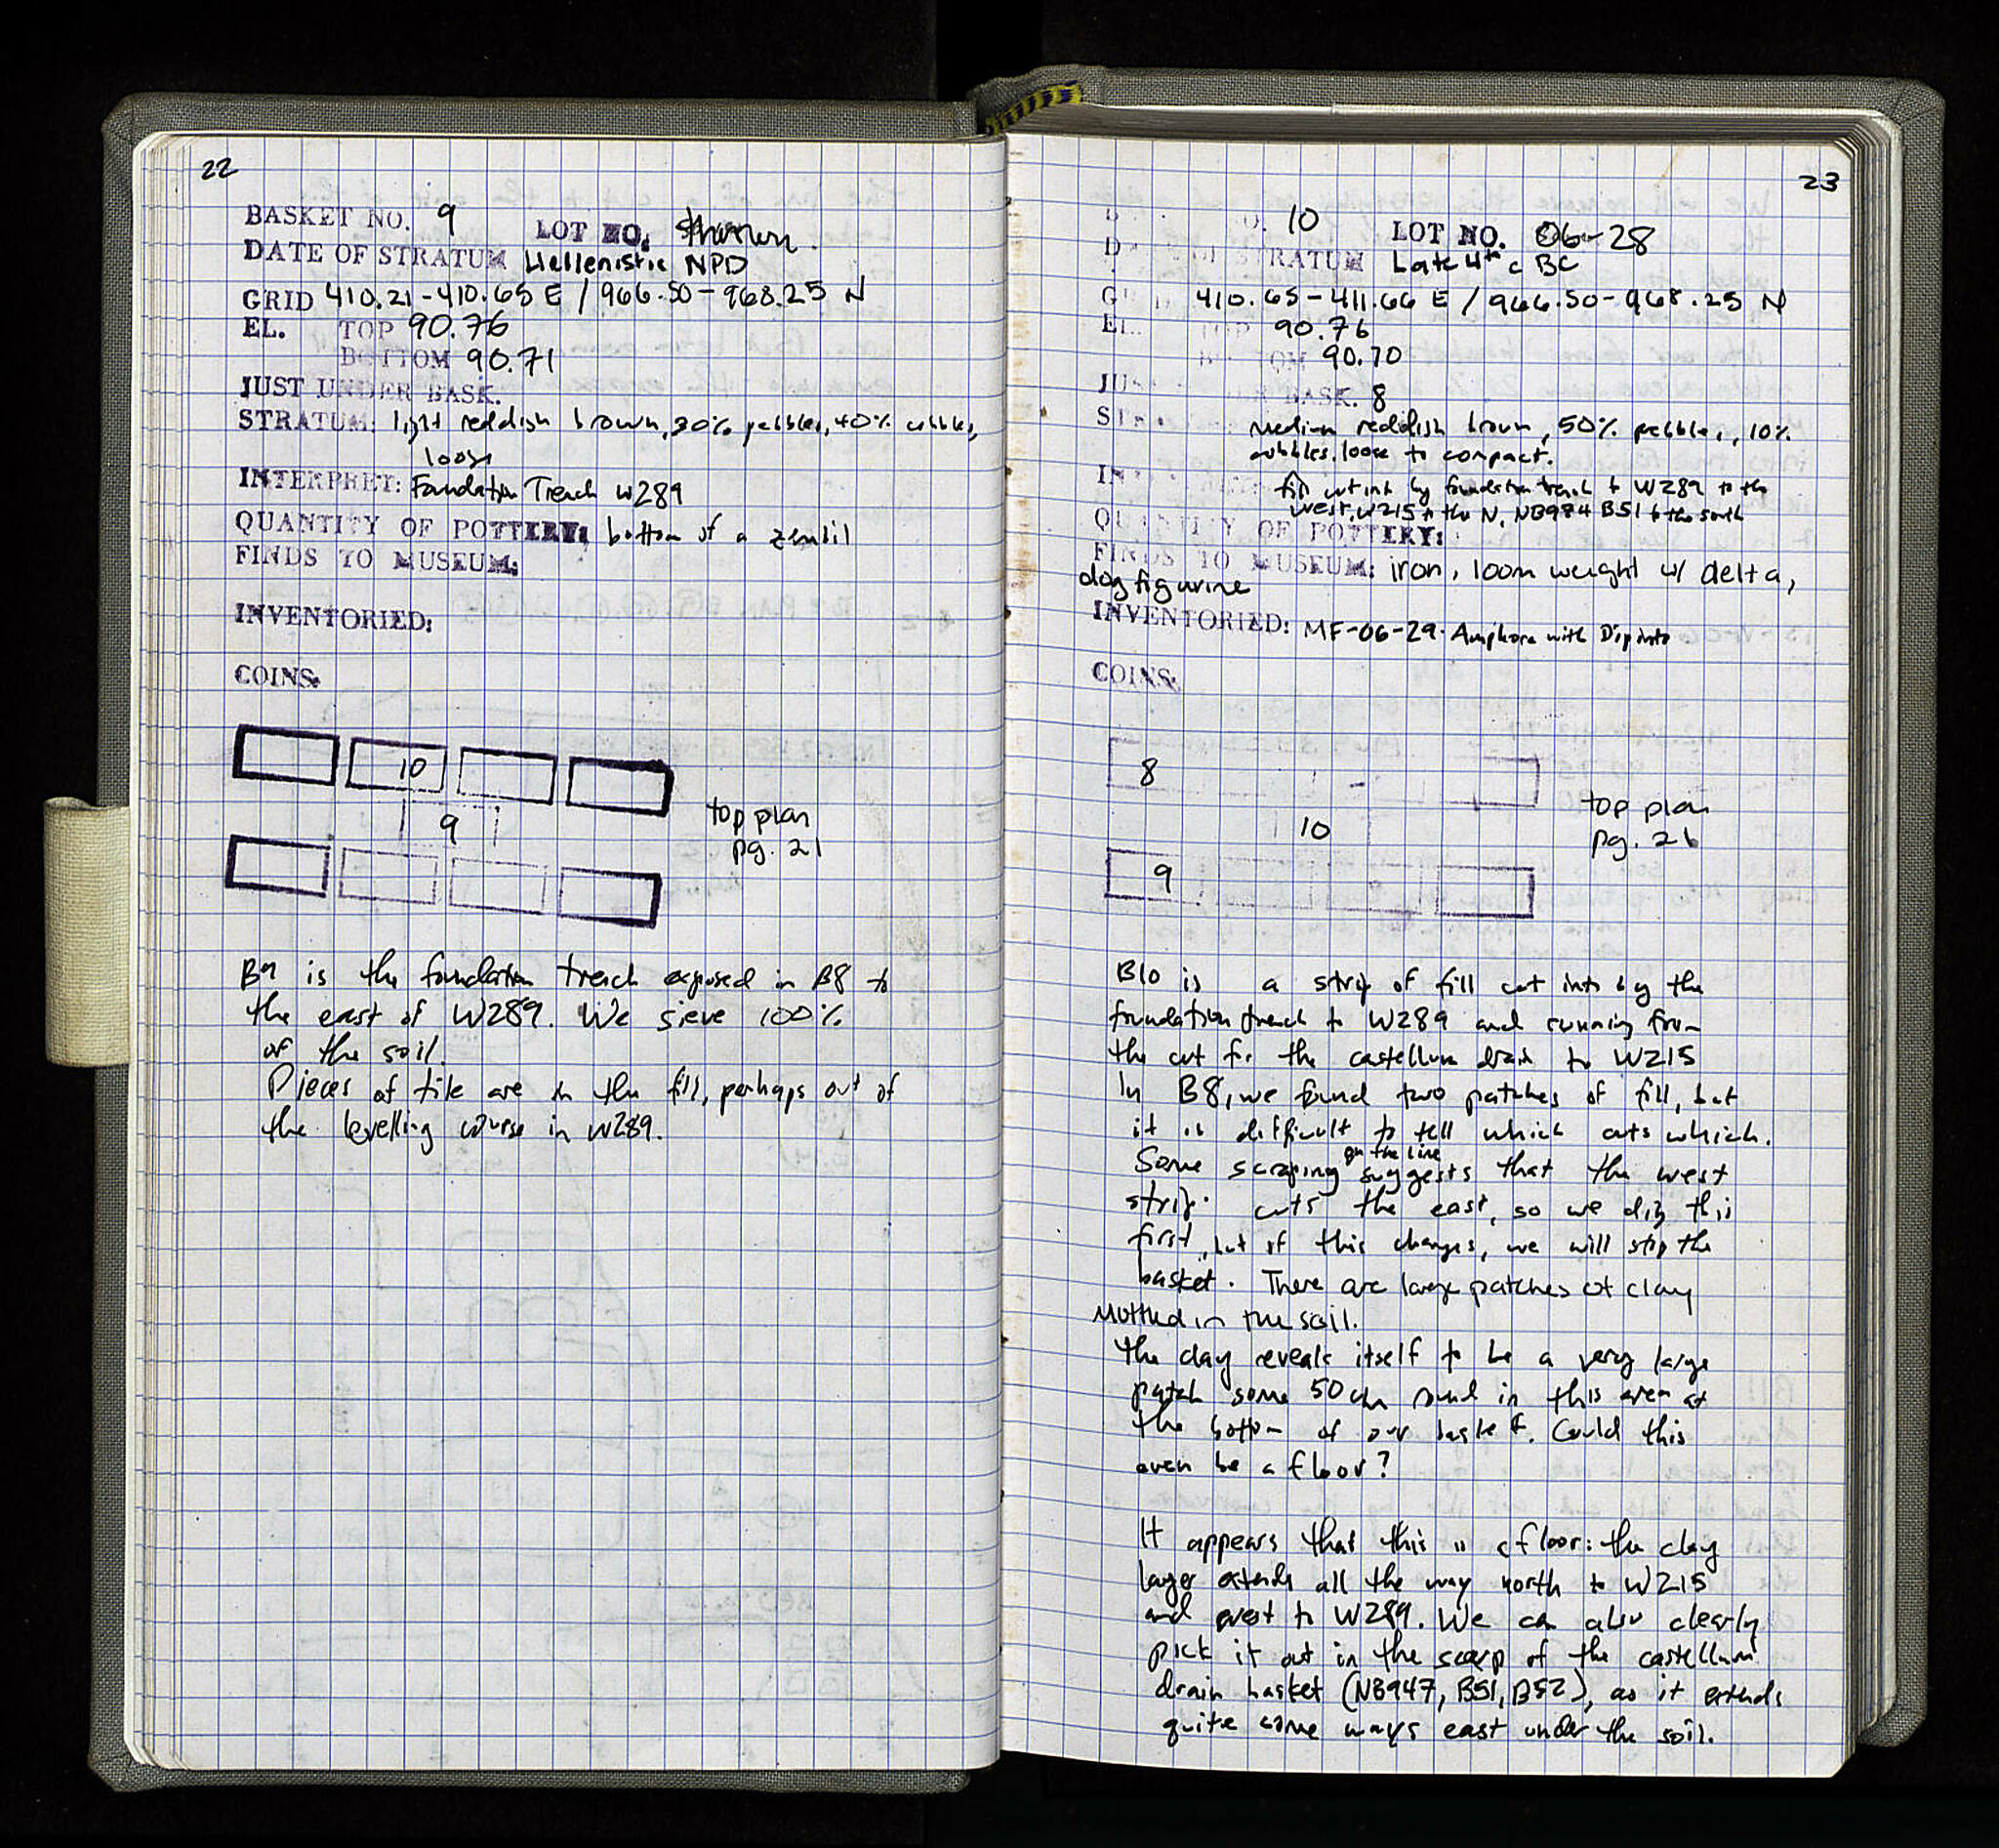 22
BASKET NO. 9 LOT NO. thrown.
DATE OF STRATUM Hellenistic NPD
GRID 410.21-410.65 E / 966.50-968.25 N
EL. TOP 90.76
BOTTOM 90.71
JUST UNDER BASK.
STRATUM: light reddish brown, 30% pebbles, 40% cobbles,
loose
INTERPRET: Foundation Trench W289
QUANTITY OF POTTERY: bottom of a zembil
FINDS TO MUSEUM:
INVENTORIED:
COINS:
10
9
top plan
pg. 21
B9 is the foundation trench exposed in B8 to
the east of W289. We sieve 100%
of the soil.
Pieces of tile are in the fill, perhaps out of
the levelling course in W289.
23
10 LOT NO. 06-28
STRATUM Late 4th c BC
410.65-411.66 E / 966.50-968.25 N
EL. TOP 90.76
BOTTOM 90.70
JUST UNDER BASK. 8
Medium reddish brown, 50% pebbles, 10%
cobbles. loose to compact.
fill cut into by foundation trench to W289 to the
west, W215 to the N, NB984 B51 to the south
QUANTITY OF POTTERY:
FINDS TO MUSEUM: iron, loom weight w/ delta,
dog figurine
INVENTORIED: MF-06-29. Amphora with Dipinto
COINS:
8
10
9
top plan
pg. 26
B10 is a strip of fill cut into by the
foundation trench to W289 and running from
the cut for the castellum drain to W215
In B8, we found two patches of fill, but
it is difficult to tell which cuts which.
on the line
Some scraping suggests that the west
strip cuts the east, so we dig this
first, but if this changes, we will stop the
basket. There are large patches of clay
mottled in the soil.
The clay reveals itself to be a very large
patch some 50cm round in this area at
the bottom of our basket. Could this
even be a floor?
It appears that this is a floor: the clay
layer extends all the way north to W215
and west to W289. We can also clearly
pick it out in the scarp of the castellum
drain basket (NB947, B51, B52), as it extends
quite some ways east under the soil.